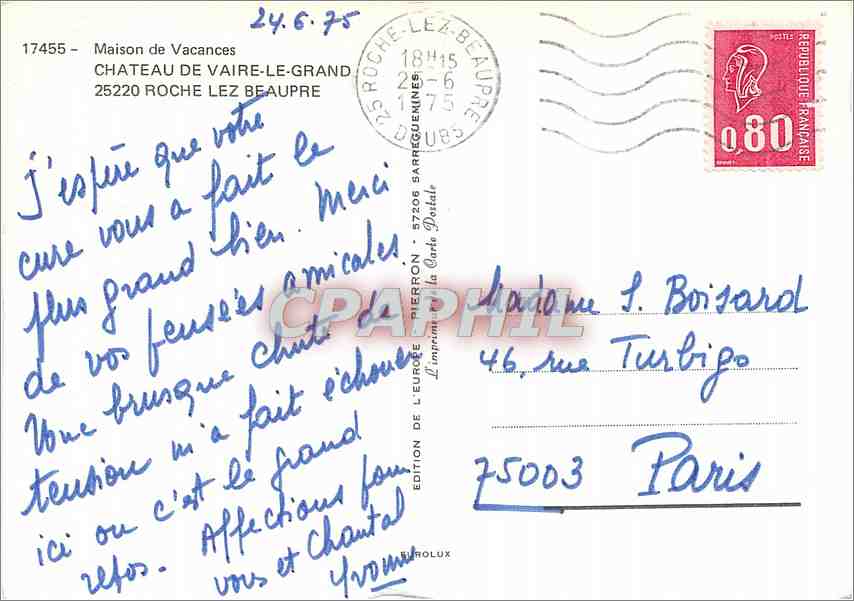 24.6.75
17455 - Maison de Vacances
CHATEAU DE VAIRE-LE-GRAND
25220 ROCHE LEZ BEAUPRE
25 ROCHE-LEZ-BEAUPRE
18H15
-6
DOUBS
POSTES
REPUBLIQUE FRANÇAISE
0,80
J'espère que votre
cure vous a fait le
plus grand bien. Merci
de vos pensées amicales.
Une brusque chute de
tension m'a fait échouer
ici ou c'est le grand
repos. Affections pour
vous et Chantal
Yvonne
EDITION DE L'EUROPE PIERRON - 57206 SARREGUEMINES
L'imprimeur de la Carte Postale
EUROLUX
CPAPHIL
Madame S. Boisard
46, rue Turbigo
75003 Paris